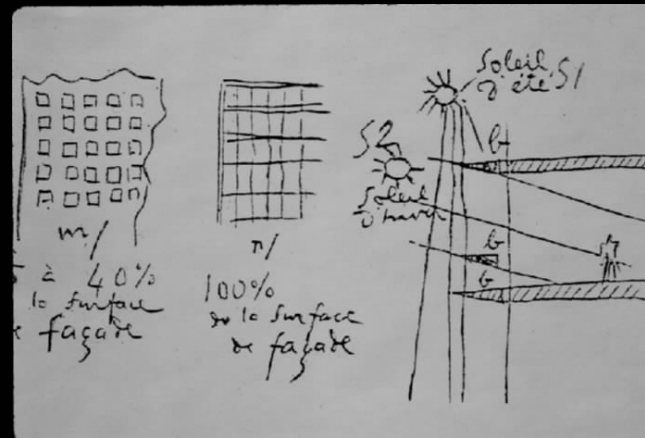 m/
à 40%
la surface
façade
n/
100%
de la surface
de façade
Soleil
d'été S1
S2
Soleil
d'hiver
b
b
b